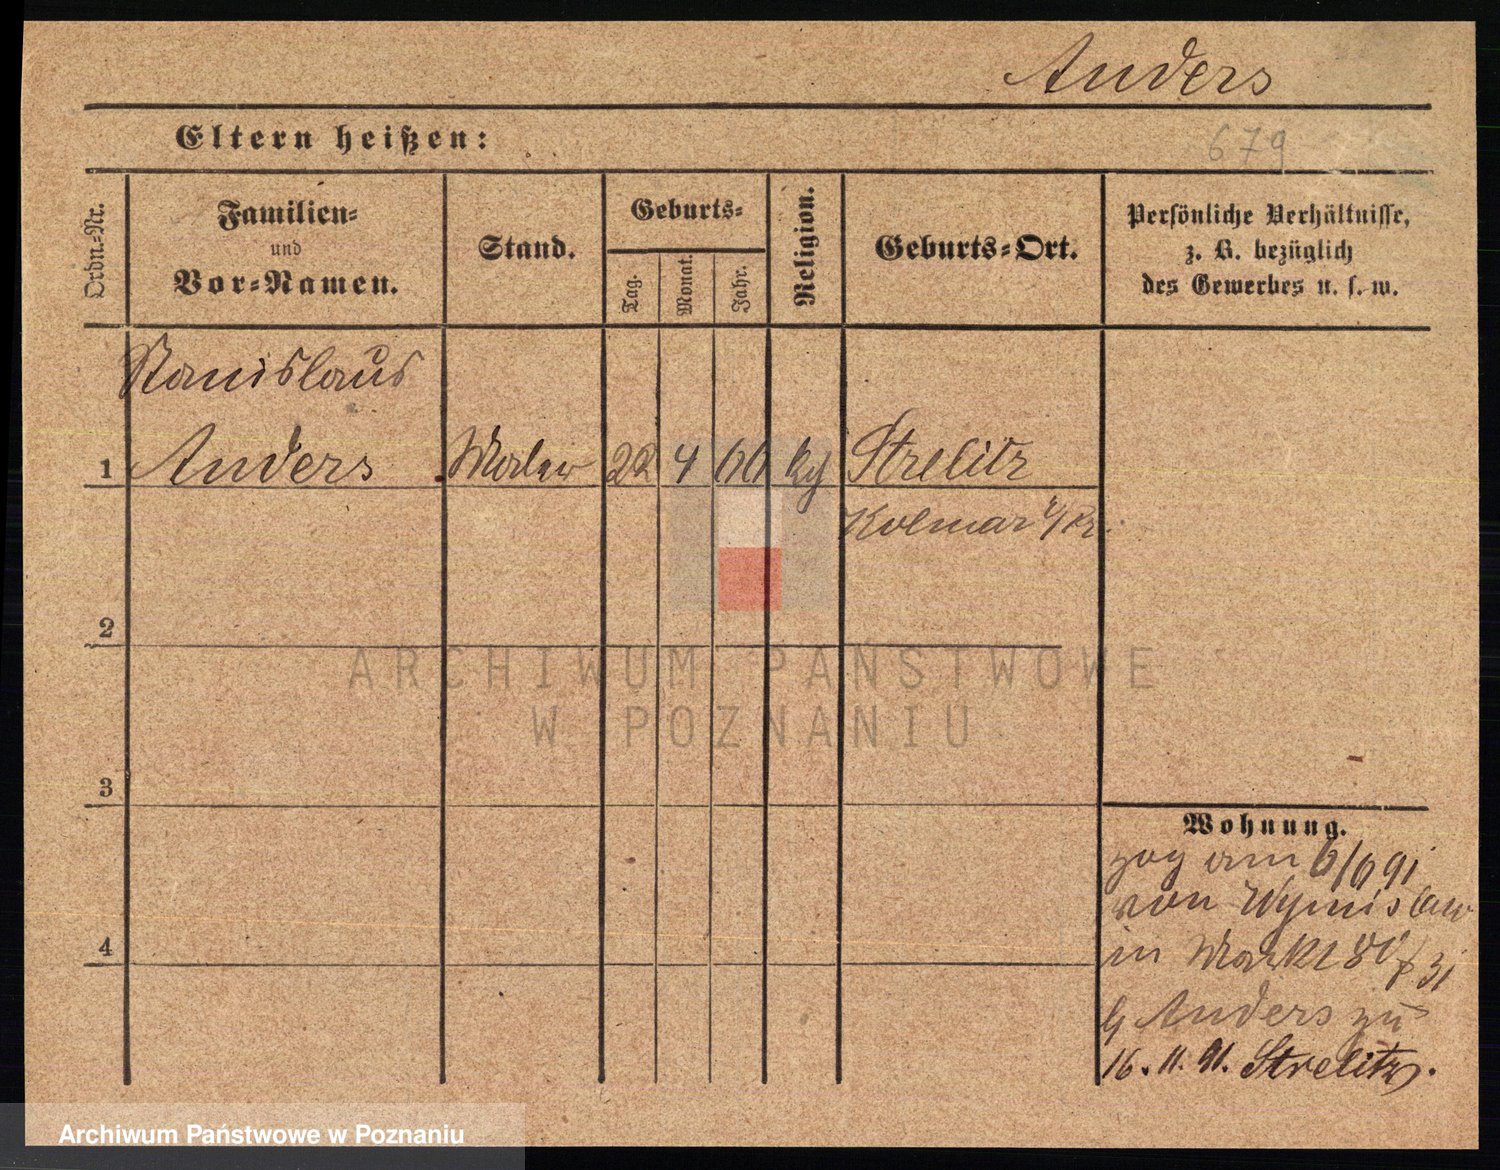 Anders
Eltern heißen:
679
Ordn.=Nr.
Familien=
und
Vor=Namen.
Stand.
Geburts=
Tag.
Monat.
Jahr.
Religion.
Geburts=Ort.
Persönliche Verhältnisse,
z. B. bezüglich
des Gewerbes u. s. w.
Stanislaus
1 Anders Maler 22 4 66 kg Strelitz
Kolmar i/Pr.
2
3
4
Wohnung.
zog am 6/6 91
von Wymislaw
in Markt 80
Anders zu
16. 11. 91. Strelitz.
ARCHIWUM PAŃSTWOWE
W POZNANIU
Archiwum Państwowe w Poznaniu